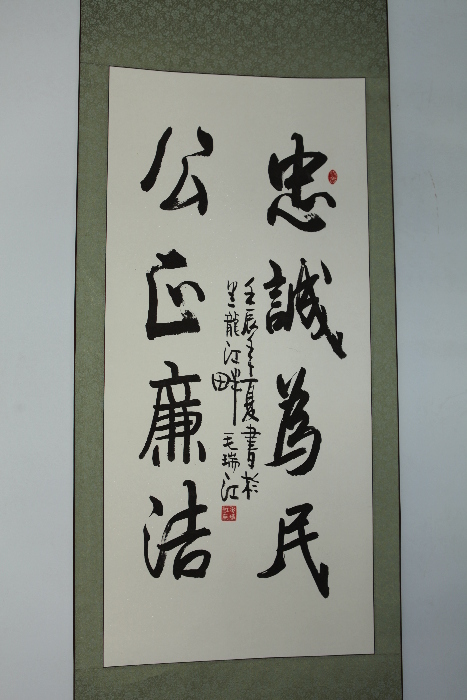 忠誠為民
公正廉洁
壬辰年夏書於
黑龍江畔 毛瑞江